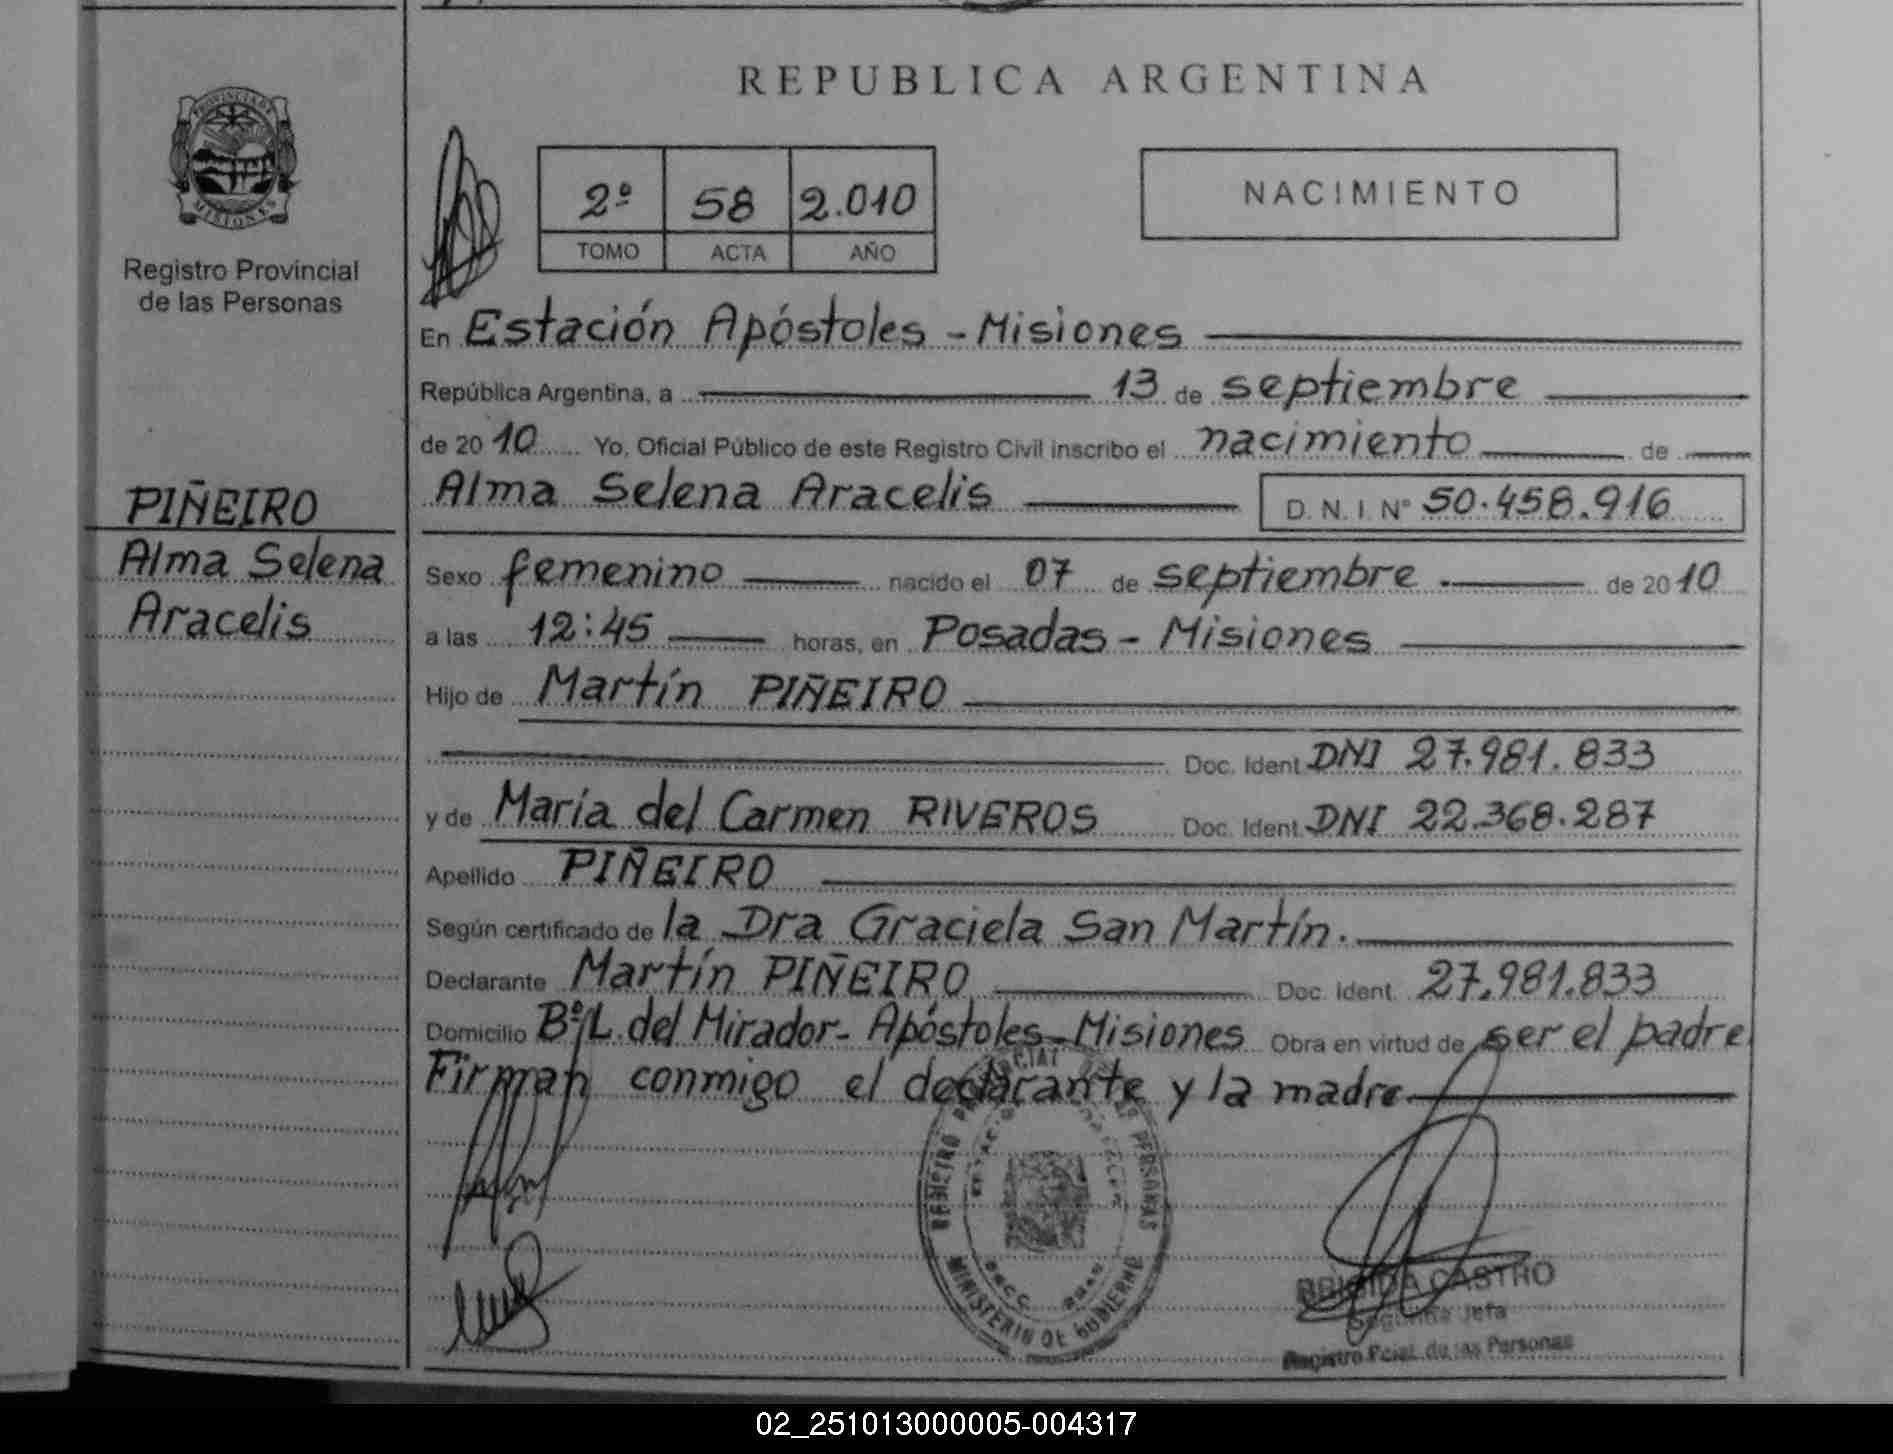 REPUBLICA ARGENTINA
PROVINCIA DE
MISIONES
Registro Provincial
de las Personas
2º 58 2.010
TOMO ACTA AÑO
NACIMIENTO
En Estación Apóstoles - Misiones
República Argentina, a 13 de septiembre
de 2010 Yo, Oficial Público de este Registro Civil inscribo el nacimiento de
PIÑEIRO
Alma Selena
Aracelis
Alma Selena Aracelis D. N. I. Nº 50.458.916
Sexo femenino nacido el 07 de septiembre de 2010
a las 12:45 horas, en Posadas - Misiones
Hijo de Martín PIÑEIRO
Doc. Ident. DNI 27.981.833
y de María del Carmen RIVEROS Doc. Ident. DNI 22.368.287
Apellido PIÑEIRO
Según certificado de la Dra Graciela San Martín.
Declarante Martín PIÑEIRO Doc. Ident. 27.981.833
Domicilio Bº/L. del Mirador - Apóstoles - Misiones Obra en virtud de ser el padre
Firman conmigo el declarante y la madre
PERSONAS
MINISTERIO DE GOBIERNO
BRIGIDA CASTRO
Segunda Jefa
Registro Pcial. de las Personas
02_251013000005-004317